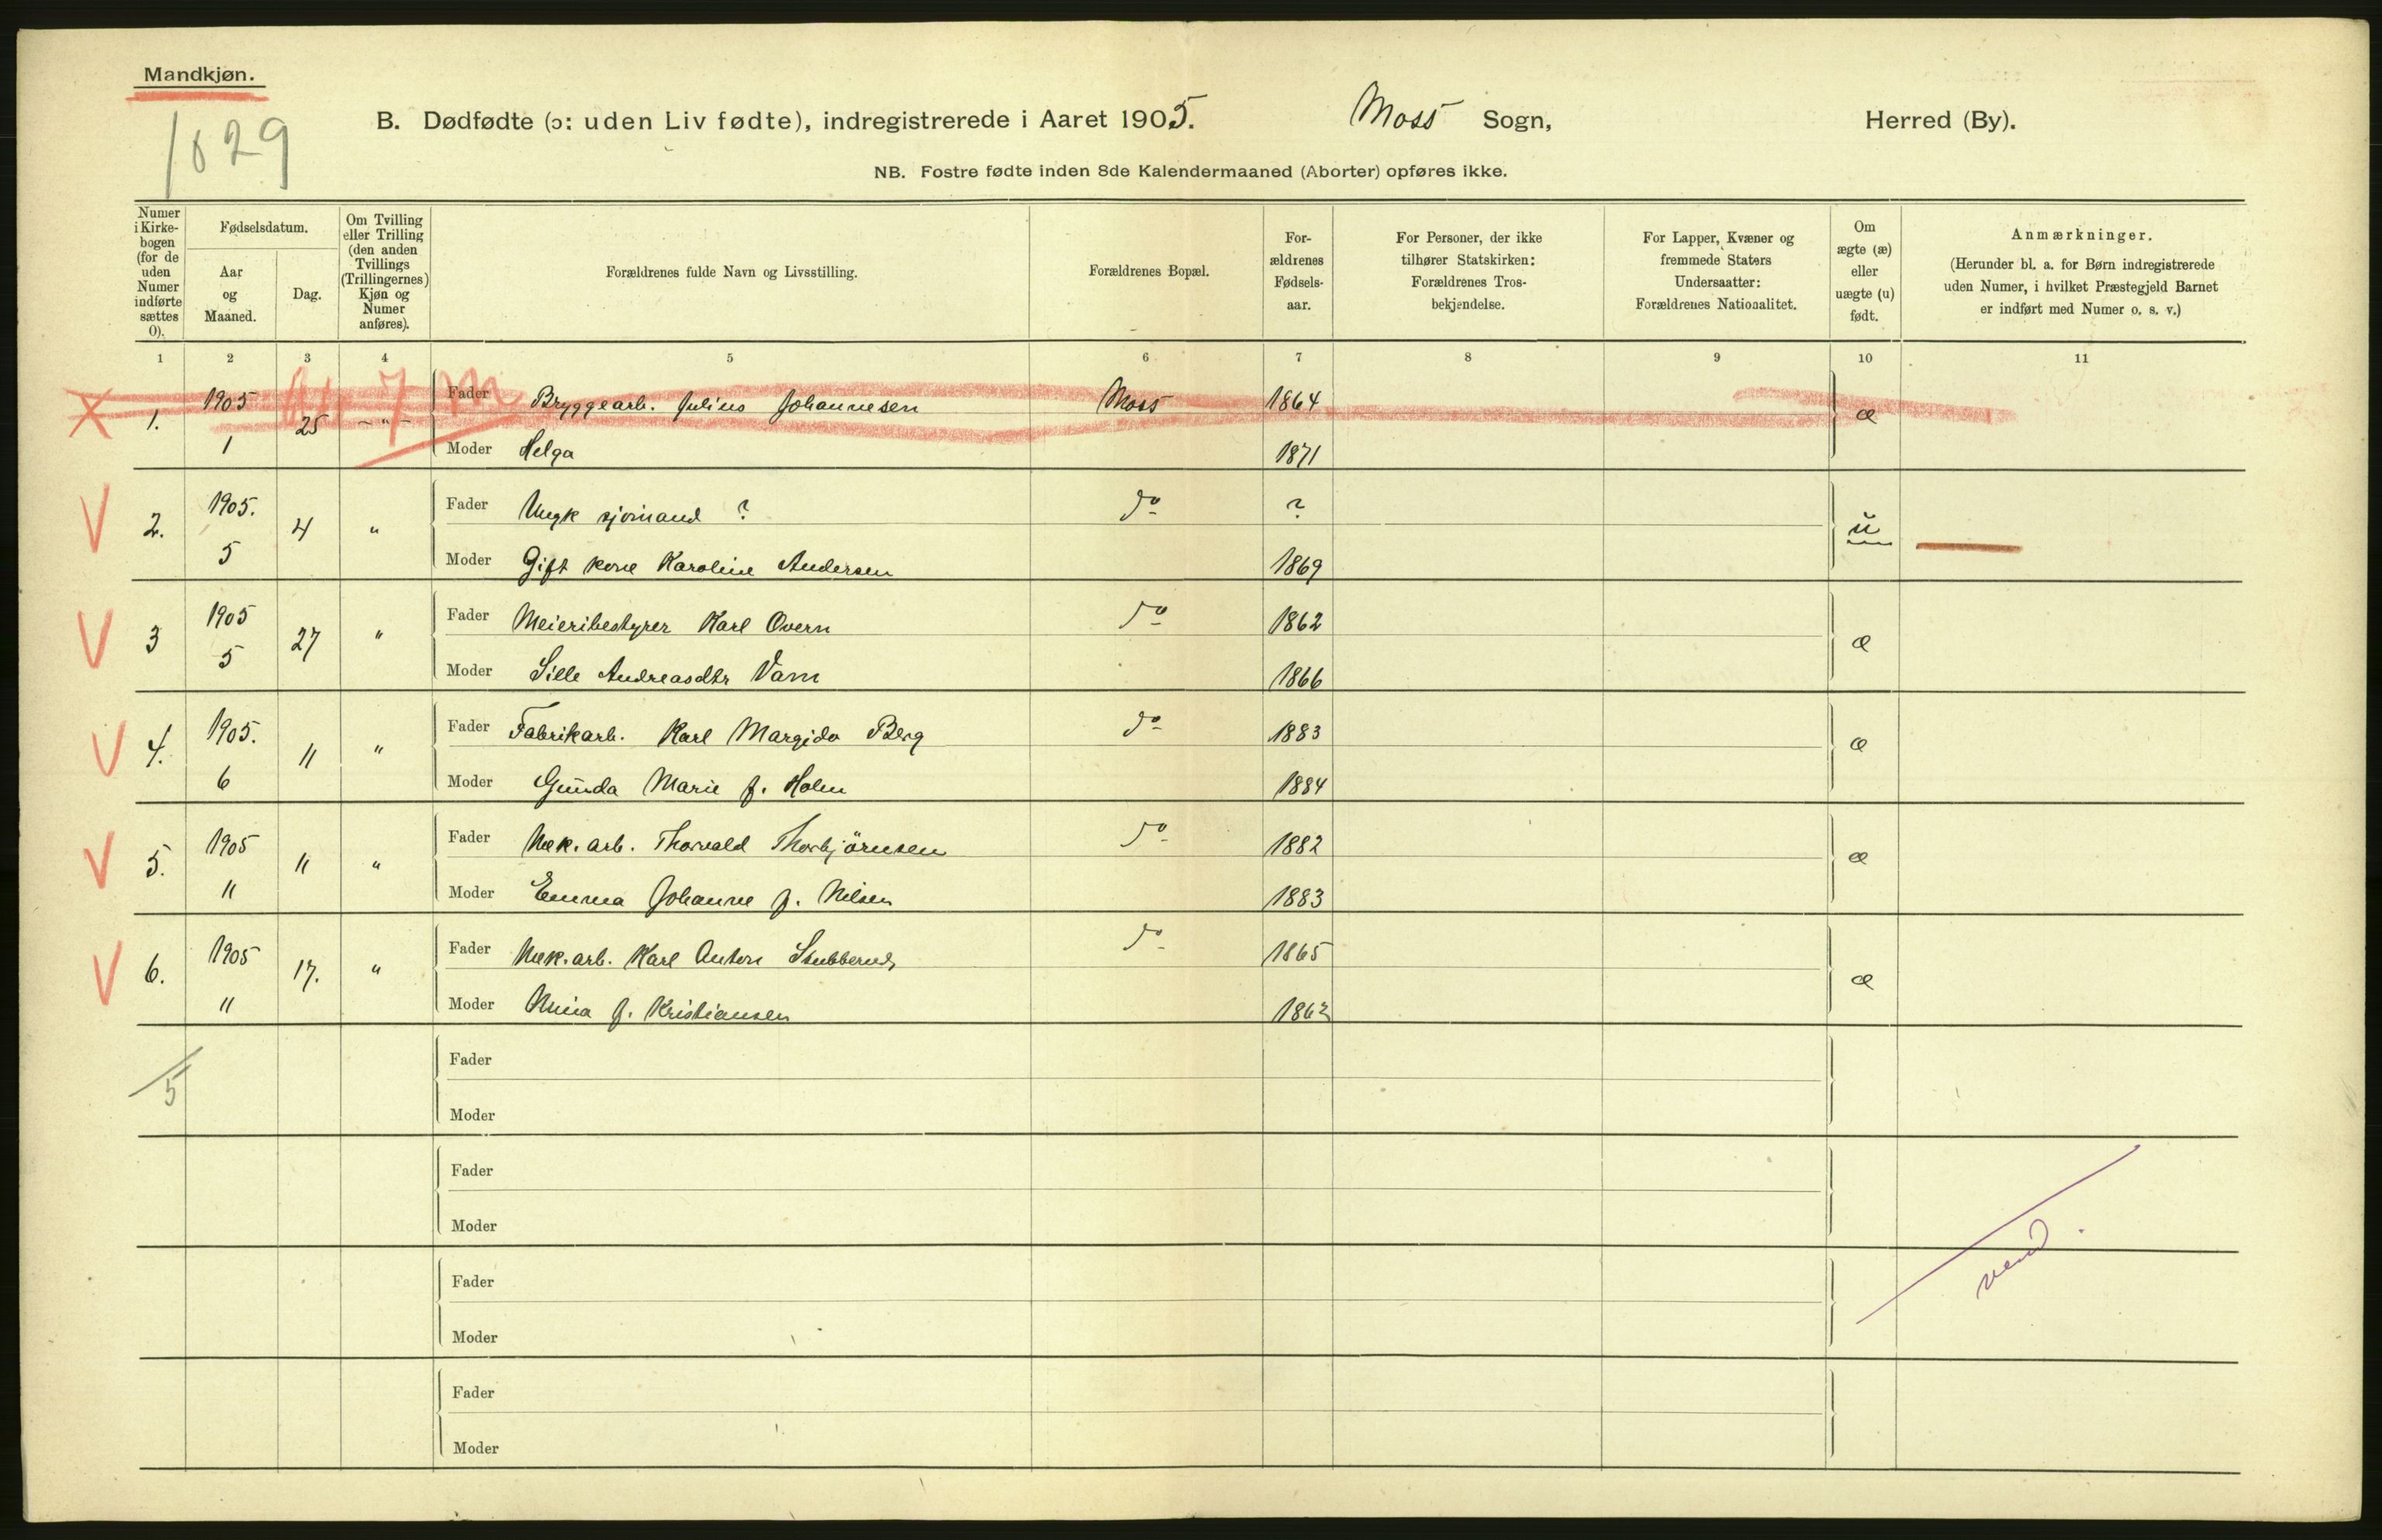 Mandkjøn.
1029
B. Dødfødte (ɔ: uden Liv fødte), indregistrerede i Aaret 1905. Moss Sogn, Herred (By).
NB. Fostre fødte inden 8de Kalendermaaned (Aborter) opføres ikke.
Numer i Kirke-bogen (for de uden Numer indførte sættes 0).
Fødselsdatum.
Aar og Maaned.
Dag.
Om Tvilling eller Trilling (den anden Tvillings (Trillingernes) Kjøn og Numer anføres).
Forældrenes fulde Navn og Livsstilling.
Forældrenes Bopæl.
For-ældrenes Fødsels-aar.
For Personer, der ikke tilhører Statskirken: Forældrenes Tros-bekjendelse.
For Lapper, Kvæner og fremmede Staters Undersaatter: Forældrenes Nationalitet.
Om ægte (æ) eller uægte (u) født.
Anmærkninger.
(Herunder bl. a. for Børn indregistrerede uden Numer, i hvilket Præstegjeld Barnet er indført med Numer o. s. v.)
1 2 3 4 5 6 7 8 9 10 11
1. 1905 1 25 - " - Fader Bryggearb. Julius Johannesen Moss 1864 æ
Moder Helga 1871
2. 1905. 5 4 " Fader Ungk sjømand ? do ? u
Moder Gift kone Karoline Andersen 1869
3 1905 5 27 " Fader Meieribestyrer Karl Overn do 1862 æ
Moder Sille Andreasdtr Vam 1866
4. 1905. 6 11 " Fader Fabrikarb. Karl Margido Berg do 1883 æ
Moder Gunda Marie f. Holm 1884
5. 1905 11 11 " Fader Mek. arb. Thorvald Thorbjörnsen do 1882 æ
Moder Emma Johanne f. Nilsen 1883
6. 1905 11 17. " Fader Mek. arb. Karl Anton Stubberud do 1865 æ
Moder Anna f. Kristiansen 1862
5
Fader
Moder
Fader
Moder
Fader
Moder
Fader
Moder
vend.